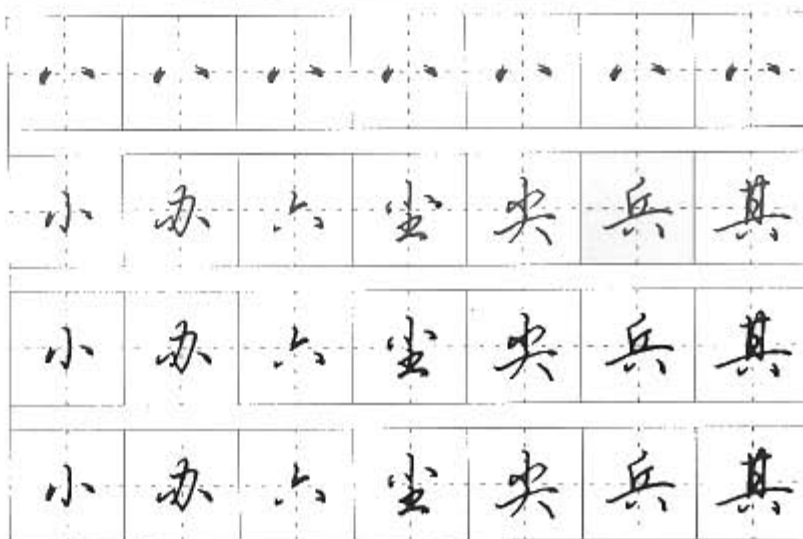 小 办 六 尘 尖 兵 其
小 办 六 尘 尖 兵 其
小 办 六 尘 尖 兵 其